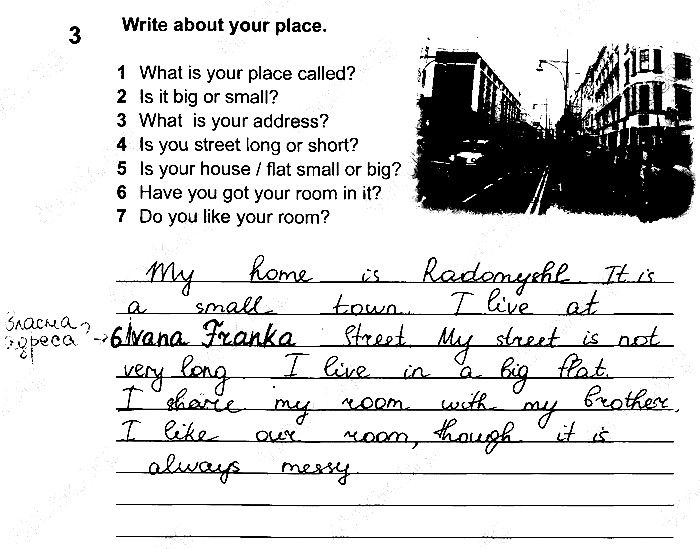 3 Write about your place.
1 What is your place called?
2 Is it big or small?
3 What is your address?
4 Is you street long or short?
5 Is your house / flat small or big?
6 Have you got your room in it?
7 Do you like your room?
My home is Radomyshl. It is
a small town. I live at
Власна адреса → 6 Ivana Franka Street. My street is not
very long. I live in a big flat.
I share my room with my brother.
I like our room, though it is
always messy